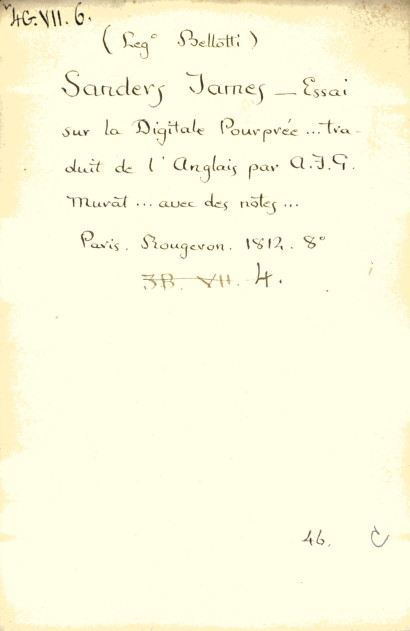 4G.VII.6.
(Leg° Bellotti)
Sanders James — Essai
sur la Digitale Pourprée ... tra-
duit de l'Anglais par A.F.G.
Murat ... avec des notes ...
Paris. Rougeron. 1812. 8°
3B. VII. 4.
46. C